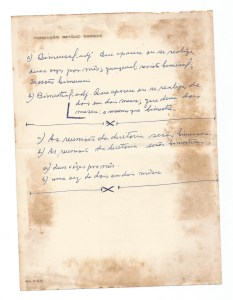 FUNDAÇÃO GETÚLIO VARGAS
a) Bimensal, adj. Que aparece ou se realiza
duas vezes por mês; quinzenal, revista bimensal,
b) Bimestral, adj. Que aparece ou se realiza de
dois em dois meses; que dura dois
meses; o mesmo que bimestre
a) As reuniões da diretoria serão bimensais
b) As reuniões da diretoria serão bimestrais
a) duas vezes por mês
b) uma vez de dois em dois meses